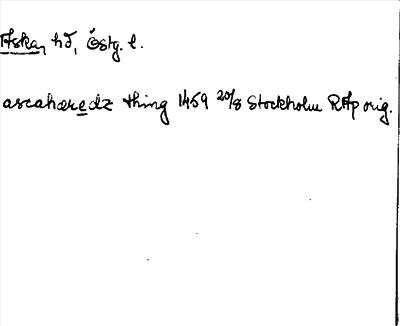 Aska, hd, Östg. l.
ascahæredz thing 1459 20/8 Stockholm RAp orig.